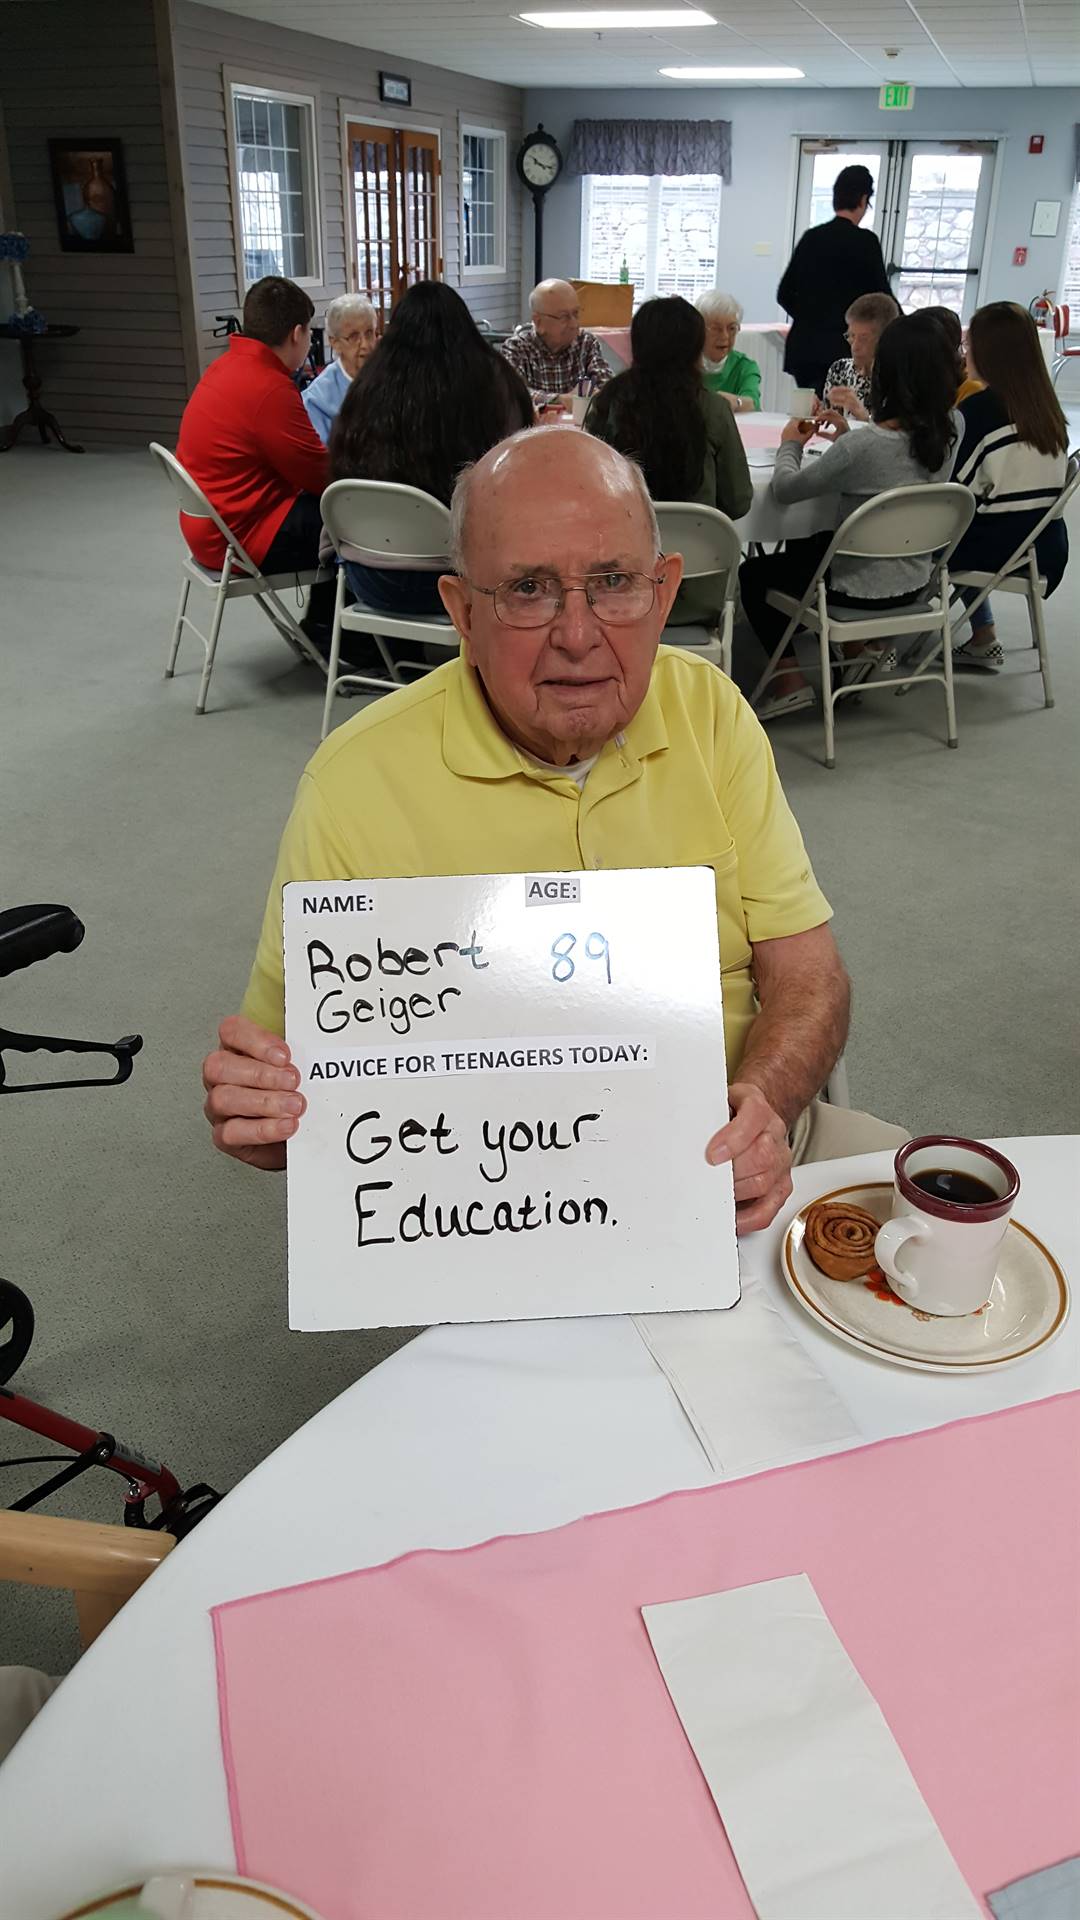 EXIT
NAME:
AGE:
Robert 89
Geiger
ADVICE FOR TEENAGERS TODAY:
Get your
Education.